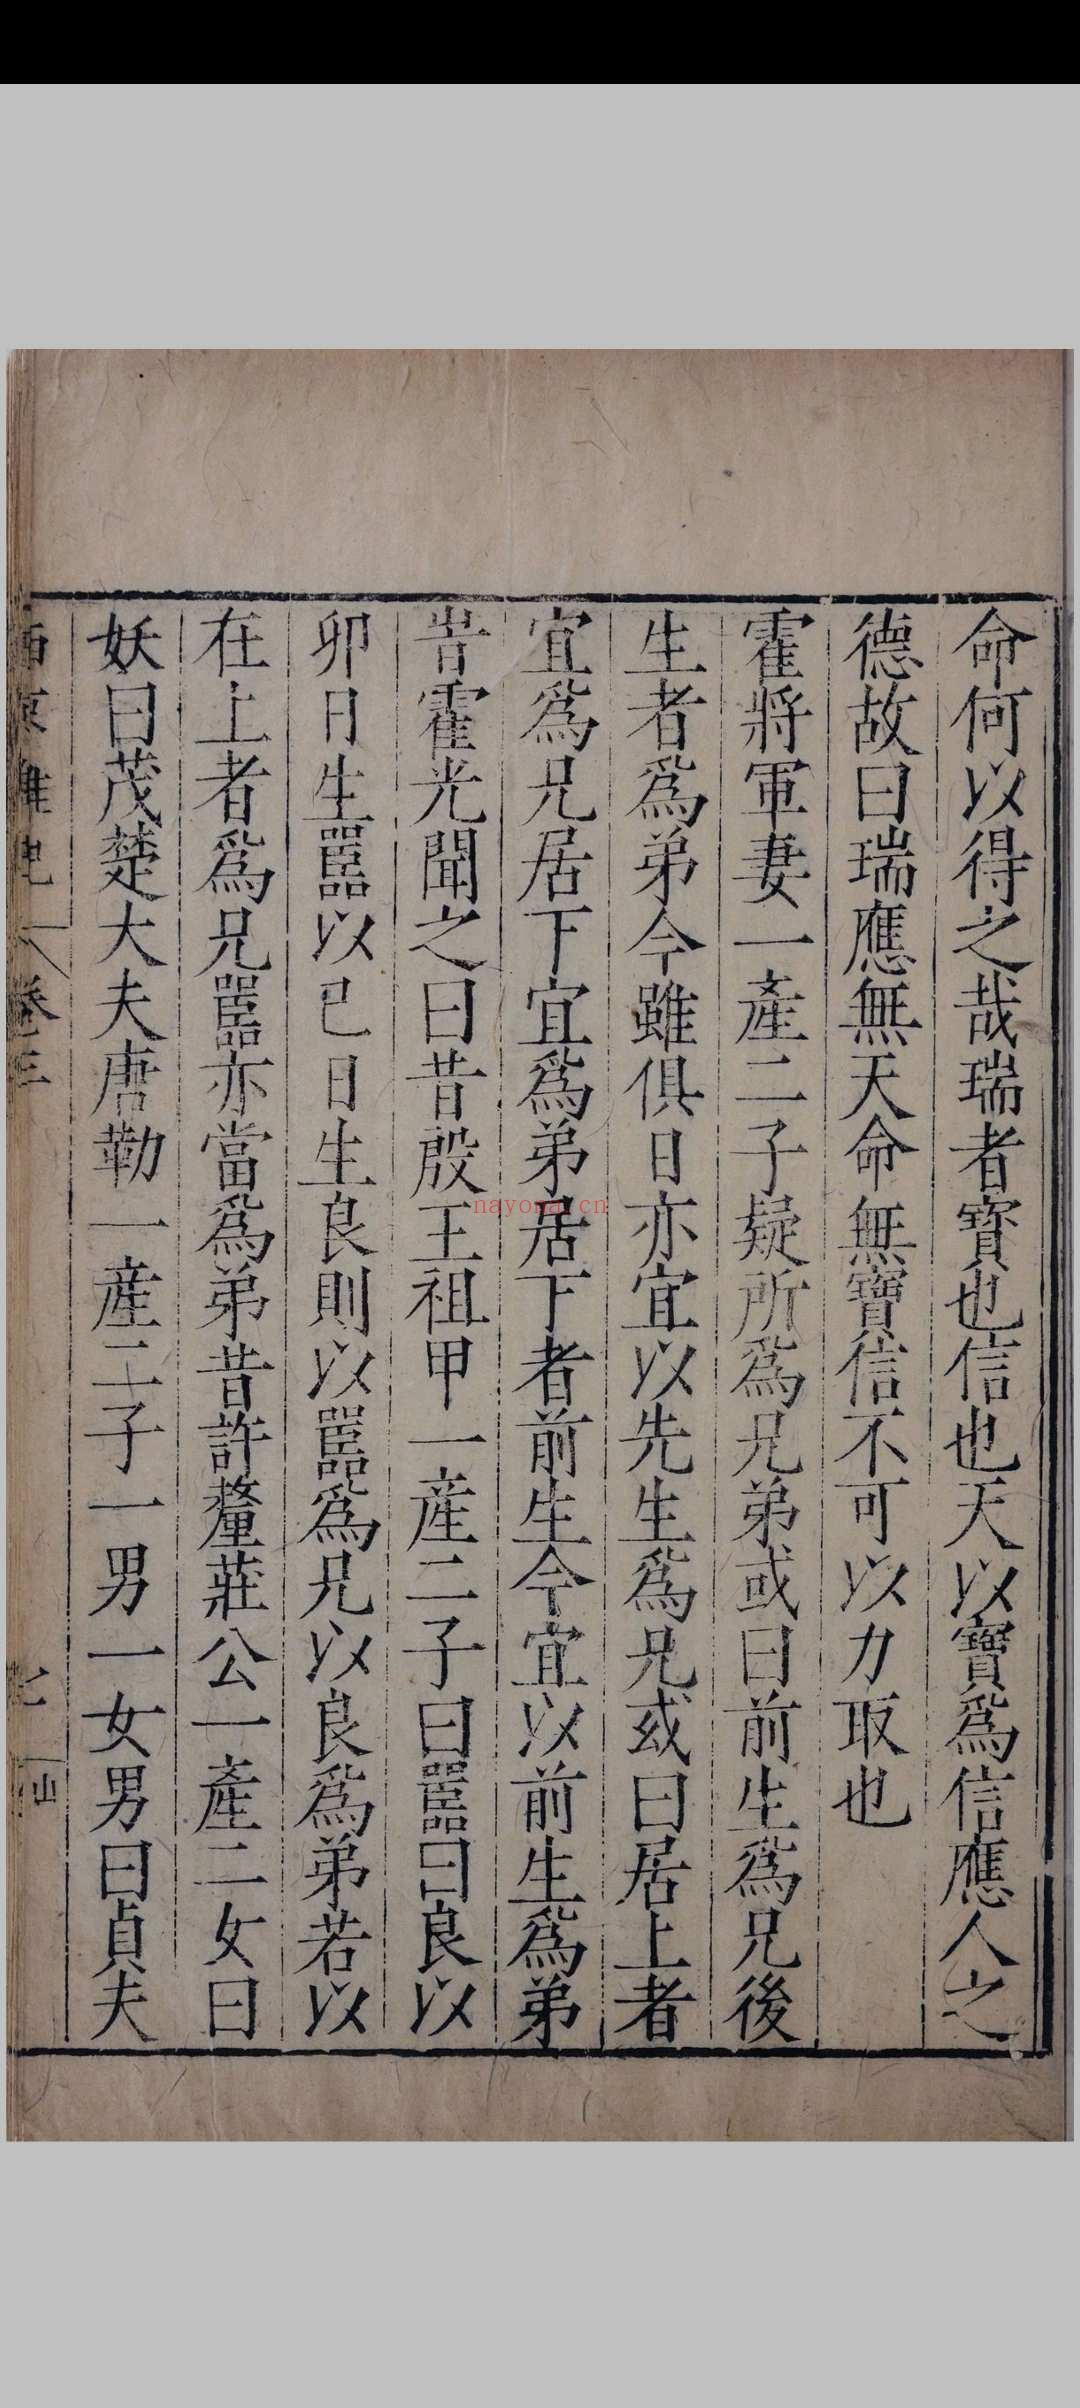 命何以得之哉瑞者寳也信也天以寳爲信應人之
德故曰瑞應無天命無寳信不可以力取也
霍將軍妻一產二子疑所爲兄弟或曰前生爲兄後
生者爲弟今雖俱日亦宜以先生爲兄或曰居上者
宜爲兄居下宜爲弟居下者前生今宜以前生爲弟
旹霍光聞之曰昔殷王祖甲一產二子曰嚚曰良以
卯日生嚚以巳日生良則以嚚爲兄以良爲弟若以
在上者爲兄嚚亦當爲弟昔許釐莊公一產二女曰
妖曰茂楚大夫唐勒一產二子一男一女男曰貞夫
西京雜記 卷三
nayona.cn